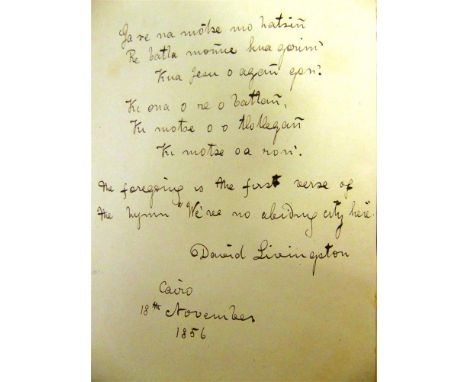 Ga re na motse mo hatsiñ
Re batla moñue kua gorim
Kua Jesu o agañ gor.
Ki ona o re o batlañ,
Ki motse o o tlollegañ
Ki motse oa rori.
The foregoing is the first verse of
the hymn "We've no abiding city here.
David Livingston
Cairo
18th November
1856